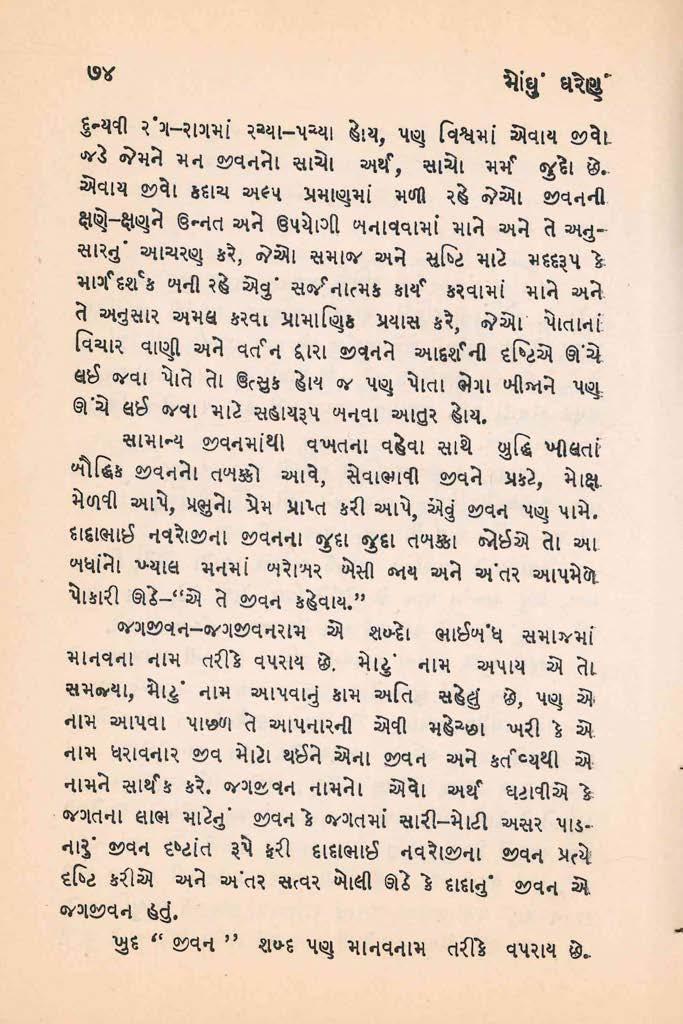 ૭૪
મોંઘું ઘરેણું
દુન્યવી રંગ–રાગમાં રચ્યા–પચ્યા હોય, પણ વિશ્વમાં એવાય જીવો
જડે જેમને મન જીવનનો સાચો અર્થ, સાચો મર્મ જુદો છે.
એવાય જીવો કદાચ અલ્પ પ્રમાણમાં મળી રહે જેઓ જીવનની
ક્ષણે–ક્ષણને ઉન્નત અને ઉપયોગી બનાવવામાં માને અને તે અનુ-
સારનું આચરણ કરે, જેઓ સમાજ અને સૃષ્ટિ માટે મદદરૂપ કે
માર્ગદર્શક બની રહે એવું સર્જનાત્મક કાર્ય કરવામાં માને અને
તે અનુસાર અમલ કરવા પ્રામાણિક પ્રયાસ કરે, જેઓ પોતાનાં
વિચાર વાણી અને વર્તન દ્વારા જીવનને આદર્શની દષ્ટિએ ઊંચે
લઈ જવા પોતે તો ઉત્સુક હોય જ પણ પોતા ભેગા બીજાને પણ
ઊંચે લઈ જવા માટે સહાયરૂપ બનવા આતુર હોય.
સામાન્ય જીવનમાંથી વખતના વહેવા સાથે બુદ્ધિ ખીલતાં
બૌદ્ધિક જીવનનો તબક્કો આવે, સેવાભાવી જીવને પ્રકટે, મોક્ષ
મેળવી આપે, પ્રભુનો પ્રેમ પ્રાપ્ત કરી આપે, એવું જીવન પણ પામે.
દાદાભાઈ નવરોજીના જીવનના જુદા જુદા તબક્કા જોઈએ તો આ
બધાંનો ખ્યાલ મનમાં બરોબર બેસી જાય અને અંતર આપમેળે
પોકારી ઊઠે–“એ તે જીવન કહેવાય.”
જગજીવન–જગજીવનરામ એ શબ્દો ભાઈબંધ સમાજમાં
માનવના નામ તરીકે વપરાય છે. મોટું નામ અપાય એ તો
સમજ્યા, મોટું નામ આપવાનું કામ અતિ સહેલું છે, પણ એ
નામ આપવા પાછળ તે આપનારની એવી મહેચ્છા ખરી કે એ
નામ ધરાવનાર જીવ મોટો થઈને એના જીવન અને કર્તવ્યથી એ
નામને સાર્થક કરે. જગજીવન નામનો એવો અર્થ ઘટાવીએ કે
જગતના લાભ માટેનું જીવન કે જગતમાં સારી–મોટી અસર પાડ-
નારું જીવન દષ્ટાંત રૂપે ફરી દાદાભાઈ નવરોજીના જીવન પ્રત્યે
દષ્ટિ કરીએ અને અંતર સત્વર બોલી ઊઠે કે દાદાનું જીવન એ
જગજીવન હતું.
ખુદ “ જીવન ” શબ્દ પણ માનવનામ તરીકે વપરાય છે.